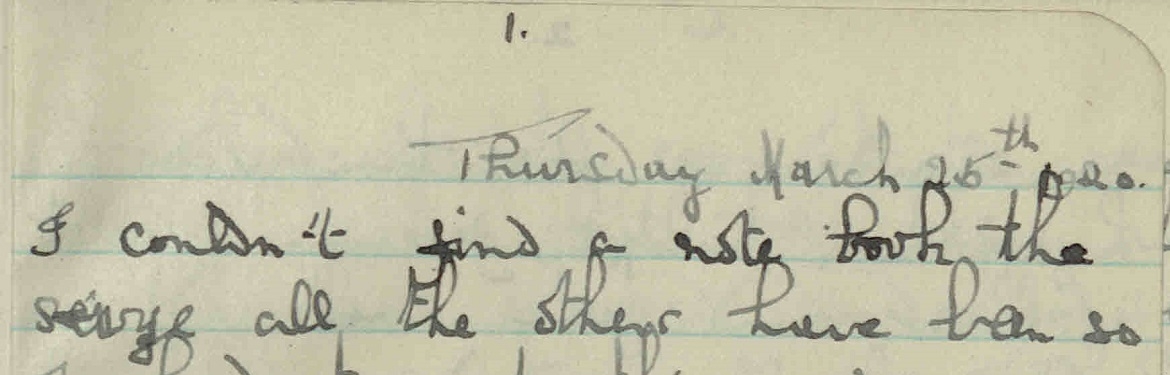 1.
Thursday March 25th 1920.
I couldn't find a note book the
serwye all the others have been so